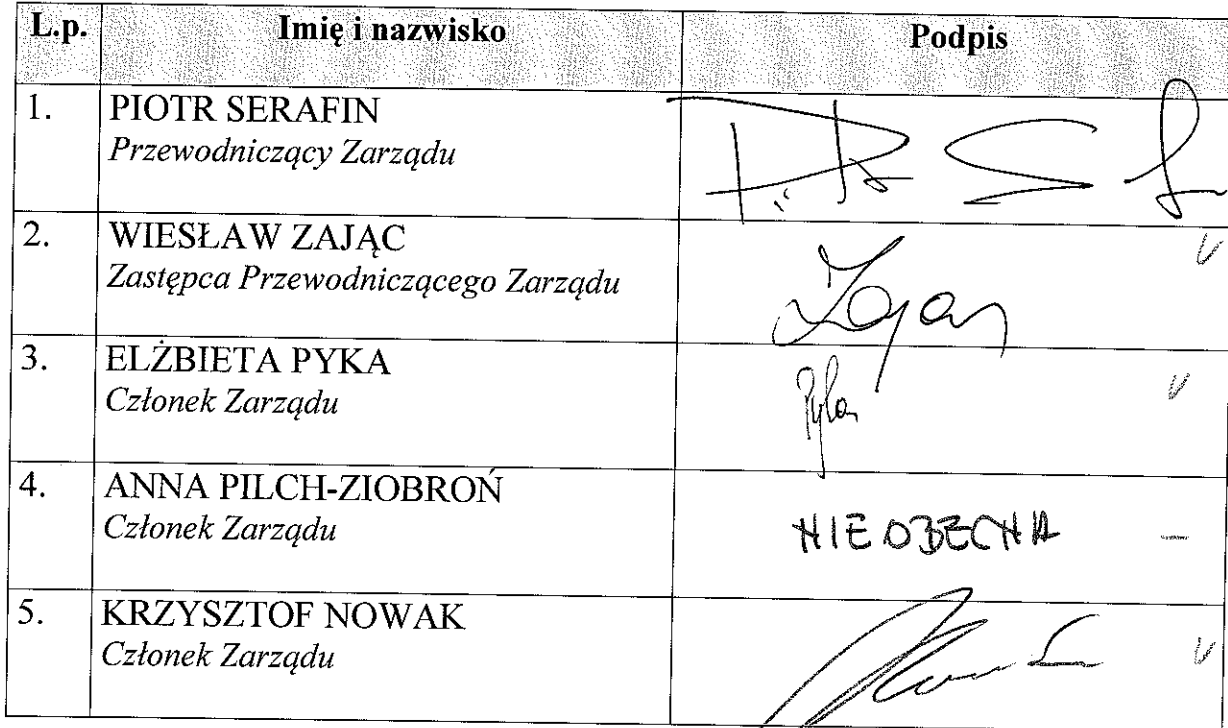 L.p. Imię i nazwisko Podpis
1. PIOTR SERAFIN
Przewodniczący Zarządu
2. WIESŁAW ZAJĄC
Zastępca Przewodniczącego Zarządu
Zając
3. ELŻBIETA PYKA
Członek Zarządu
Pyka
4. ANNA PILCH-ZIOBROŃ
Członek Zarządu
NIEOBECNA –
5. KRZYSZTOF NOWAK
Członek Zarządu